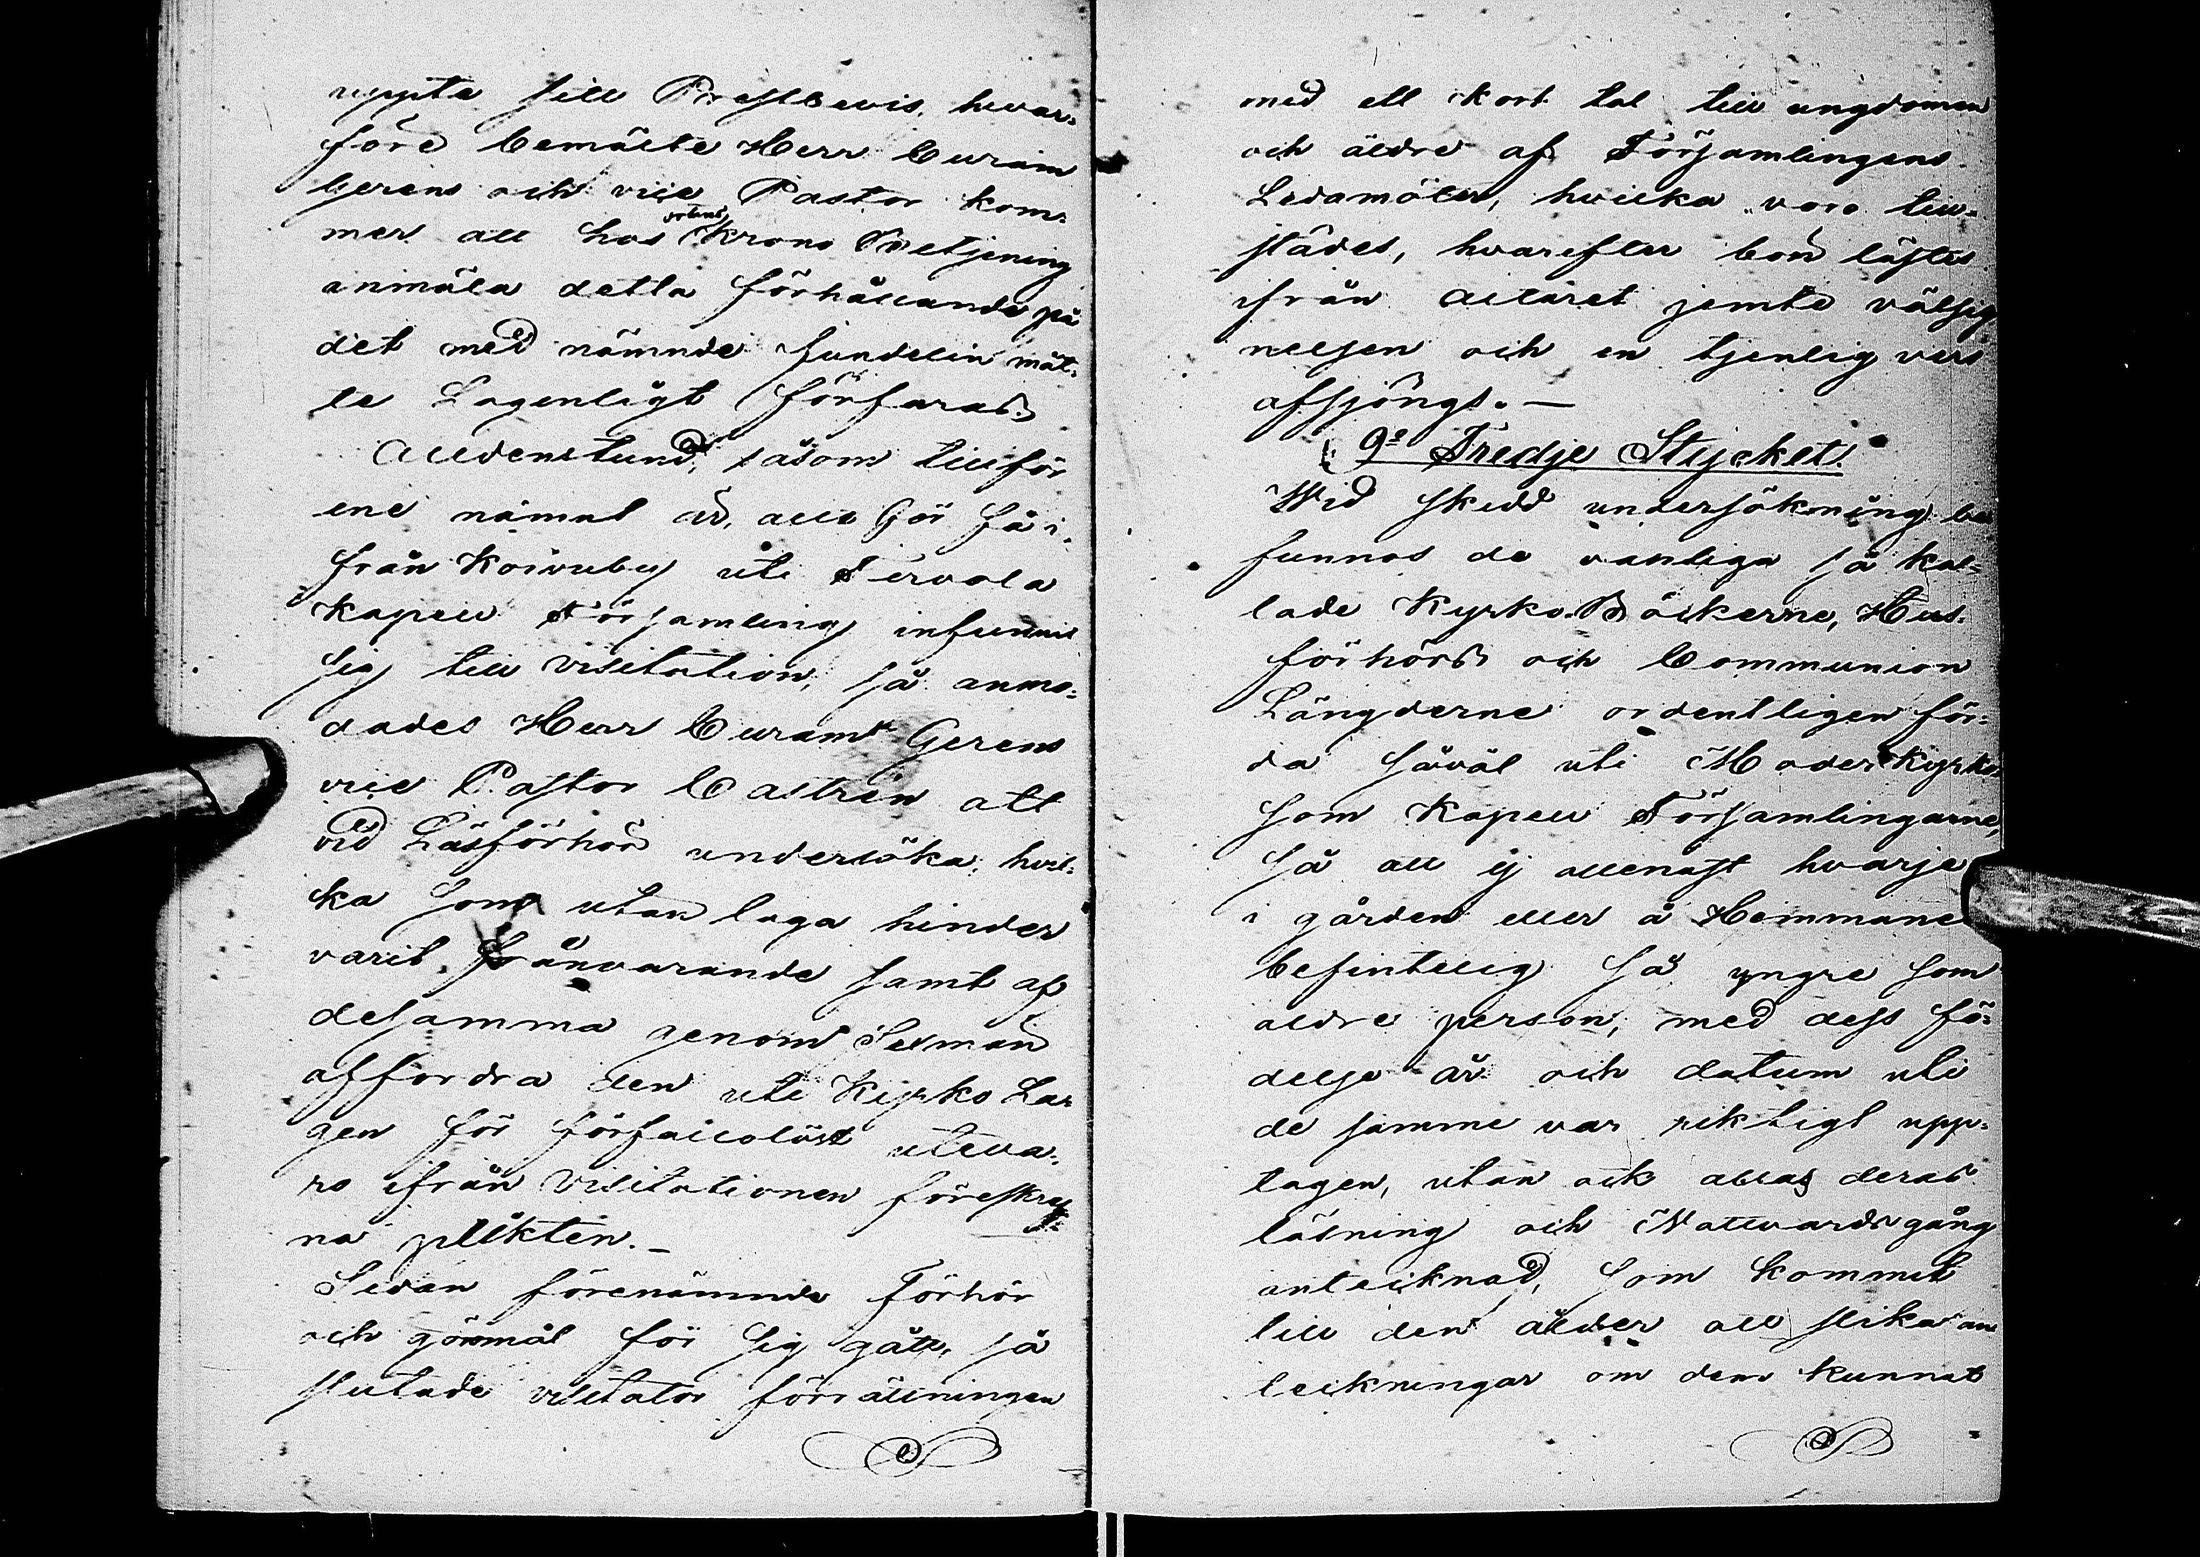 uppte sitt Prestbevis, hvar-
före bemälte Herr Curam
Gerens och vice Pastor kom-
mer att hos ortens Krono Betjening
anmäla detta förhållande på
det med nämnde Sundelin måt-
te Lagenligt förfaras.
Alldenstund, såsom tillför
ene nämnt är, alla Gör få i-
från Koivuby uti Tervola
Kapell Församling infunnit
sig till visitation, så anmo-
dades Herr Curam Gerens
vice Pastor Castrén att
vid Läsförhör undersöka, hvil-
ka som utan laga hinder
varit frånvarande samt af
desamma genom Sexman
affordra den uti Kyrko La-
gen för förfallolöst uteva-
ro ifrån Visitationen föreskref
na plikten. _
Sedan förenämnda Förhör
och göromål för sig gått, så
slutade visitator förrättningen
med ett kort tal till ungdomen
och äldre af Församlingens
Ledamöter, hvilka voro till-
städes, hvarefter bön lästes
ifrån altaret jemte välsig
nelsen och en tjenlig vers
afsjöngs. —
9º Tredje Stycket.
Wid skedd undersökning be
funnos de vanliga så kal-
lade Kyrko-Böckerne, Hus-
förhörs och Communion
Längderne ordentligen för-
da såväl uti Moderkyrko-
som Kapell Församlingarne,
så att ej allenast hvarje
i gården eller å Hemmanet
befintelig så yngre som
äldre person, med dess fö-
delse år och datum uti
de samme var riktigt upp-
tagen, utan ock allas deras
läsning och Nattvardsgång
antecknad, som kommit
till den ålder att slika an
teckningar om dem kunnat